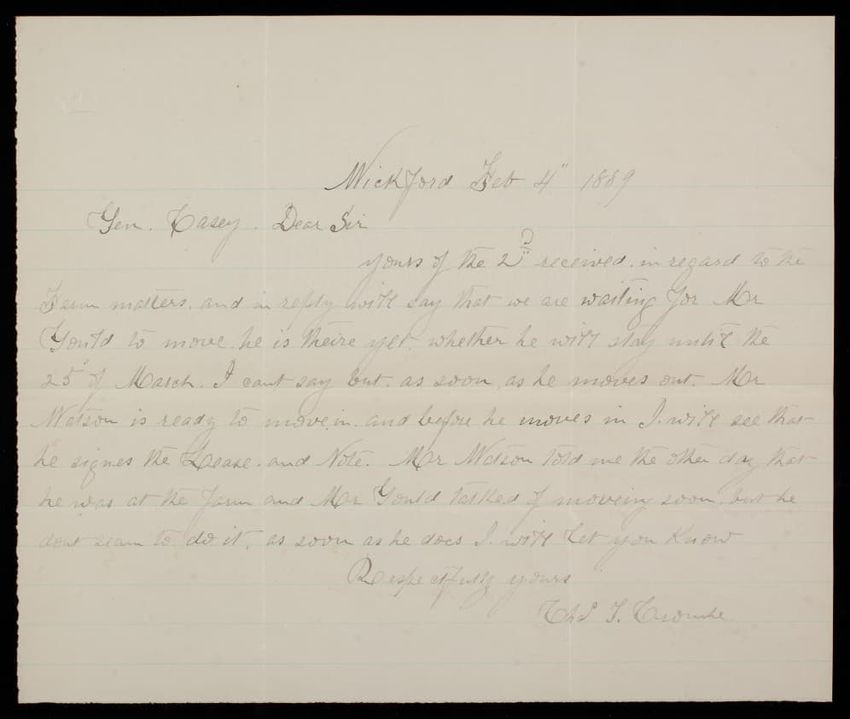 Wickford Feb 4" 1889
Gen. Casey. Dear Sir
yours of the 2" received. in regard to the
Farm matters. and in reply will say that we are waiting for Mr
Gould to move. he is theire yet. whether he will stay until the
25" of March. I cant say but. as soon as he moves out. Mr
Watson is ready to move in. and before he moves in I will see that
he signes the Lease. and Note. Mr Watson told me the other day that
he was at the farm and Mr Gould talked of moveing soon. but he
dont seam to do it. as soon as he does I will let you Know
Respectfully yours
T.